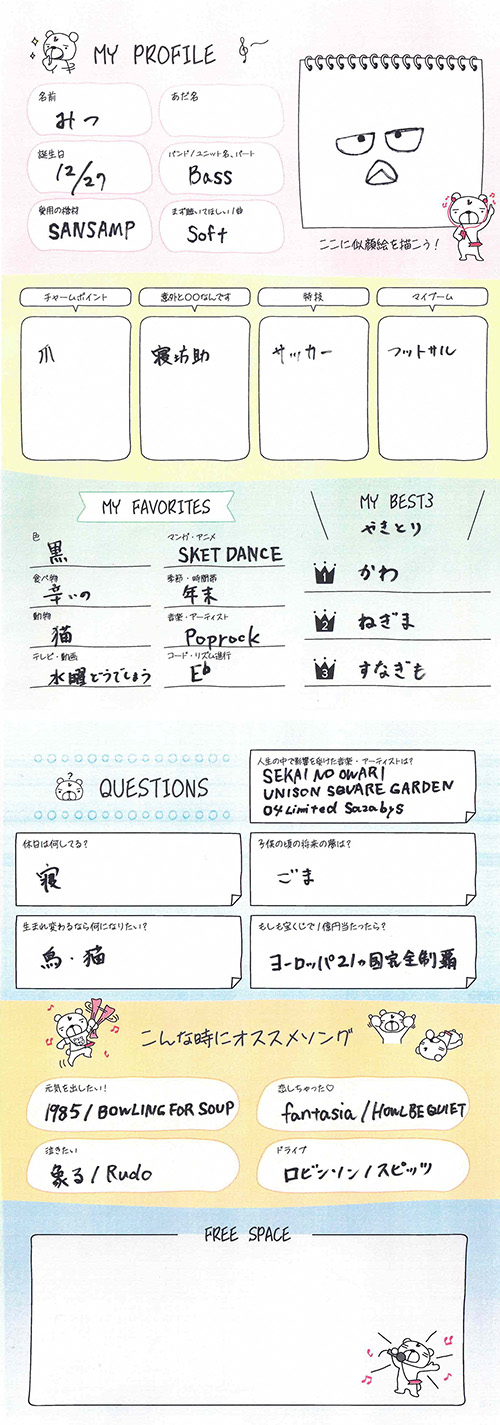 MY PROFILE
名前
みつ
あだ名
誕生日
12/27
バンド/ユニット名、パート
Bass
愛用の機材
SANSAMP
まず聴いてほしい1曲
Soft
ここに似顔絵を描こう!
チャームポイント
爪
意外と〇〇なんです
寝坊助
特技
サッカー
マイブーム
フットサル
MY FAVORITES
色
黒
マンガ・アニメ
SKET DANCE
食べ物
辛いの
季節・時間帯
年末
動物
猫
音楽・アーティスト
Poprock
テレビ・動画
水曜どうでしょう
コード・リズム進行
E♭
MY BEST3
やきとり
1 かわ
2 ねぎま
3 すなぎも
QUESTIONS
人生の中で影響を受けた音楽・アーティストは?
SEKAI NO OWARI
UNISON SQUARE GARDEN
04 Limited Sazabys
休日は何してる?
寝
子供の頃の将来の夢は?
ごま
生まれ変わるなら何になりたい?
鳥・猫
もしも宝くじで1億円当たったら?
ヨーロッパ21ヵ国完全制覇
こんな時にオススメソング
元気を出したい!
1985/BOWLING FOR SOUP
恋しちゃった♡
fantasia/HOWL BE QUIET
泣きたい
象る/Rudo
ドライブ
ロビンソン/スピッツ
FREE SPACE